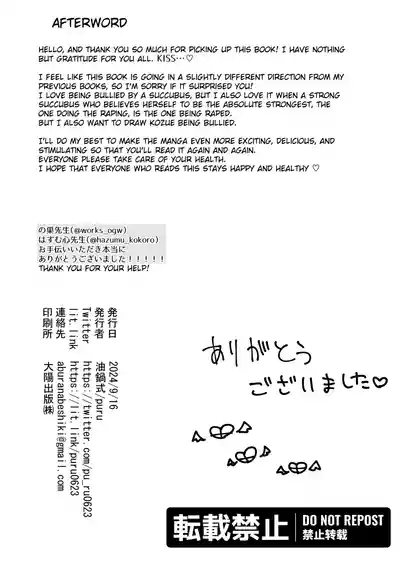 AFTERWORD
HELLO, AND THANK YOU SO MUCH FOR PICKING UP THIS BOOK! I HAVE NOTHING
BUT GRATITUDE FOR YOU ALL. KISS…♡
I FEEL LIKE THIS BOOK IS GOING IN A SLIGHTLY DIFFERENT DIRECTION FROM MY
PREVIOUS BOOKS, SO I'M SORRY IF IT SURPRISED YOU!
I LOVE BEING BULLIED BY A SUCCUBUS, BUT I ALSO LOVE IT WHEN A STRONG
SUCCUBUS WHO BELIEVES HERSELF TO BE THE ABSOLUTE STRONGEST, THE
ONE DOING THE RAPING, IS THE ONE BEING RAPED.
BUT I ALSO WANT TO DRAW KOZUE BEING BULLIED.
I'LL DO MY BEST TO MAKE THE MANGA EVEN MORE EXCITING, DELICIOUS, AND
STIMULATING SO THAT YOU'LL READ IT AGAIN AND AGAIN.
EVERYONE PLEASE TAKE CARE OF YOUR HEALTH.
I HOPE THAT EVERYONE WHO READS THIS STAYS HAPPY AND HEALTHY ♡
の果先生(@works_ogw)
はすむ心先生(@hazumu_kokoro)
お手伝いいただき本当に
ありがとうございました！！！！！
THANK YOU FOR YOUR HELP!
発行日 2024/9/16
発行者 油鍋拭/puru
Twitter https://twitter.com/pu_ru0623
lit.link https://lit.link/puru0623
連絡先 aburanabeshiki@gmail.com
印刷所 大陽出版㈱
ありがとう
ございました♡
転載禁止
DO NOT REPOST
禁止转载